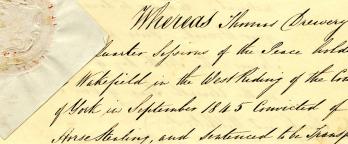 Whereas Thomas Drewery
Quarter Sessions of the Peace hold
Wakefield in the West Riding of the Cou
of York in September 1845 Convicted of
Horse Stealing, and sentenced to be Transp